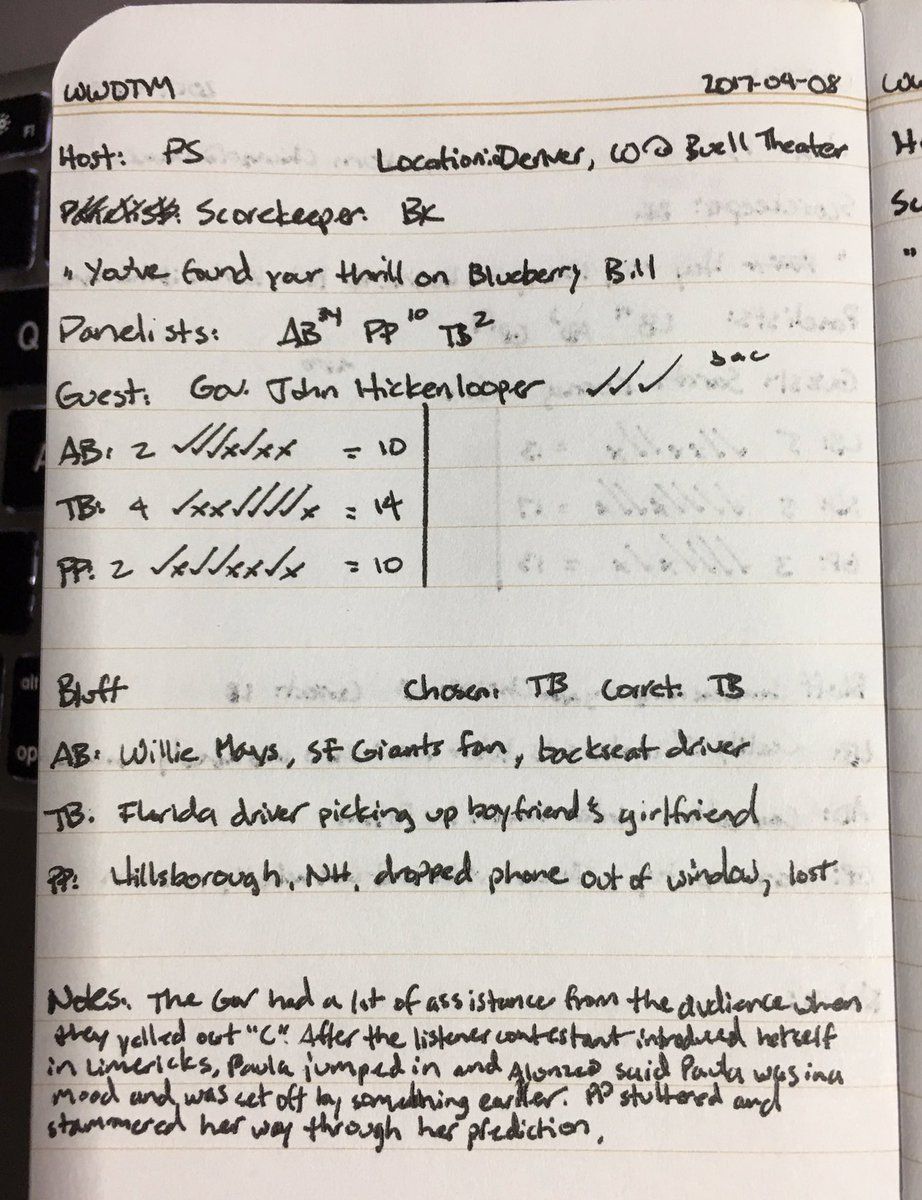 WWDTM 2017-04-08
Host: PS Location: Denver, CO @ Buell Theater
Scorekeeper: BK
"You've found your thrill on Blueberry Bill.
Panelists: AB PP 10 TB 2
Guest: Gov. John Hickenlooper ✓✓✓
AB: 2 ✓✓✓x✓xx = 10
TB: 4 ✓xx✓✓✓✓x = 14
PP: 2 ✓x✓✓xx✓x = 10
Bluff Chosen: TB Corret: TB
AB: Willie Mays, SF Giants fan, backseat driver
TB: Florida driver picking up boyfriend's girlfriend
PP: Hillsborough, NH, dropped phone out of window, lost
Notes: The Gov had a lot of assistance from the audience when
they yelled out "C". After the listener contestant introduced herself
in Limericks, Paula jumped in and Alonzo said Paula was in a
mood and was set off by something earlier. PP stuttered and
stammered her way through her prediction.
Q
A
alt
op